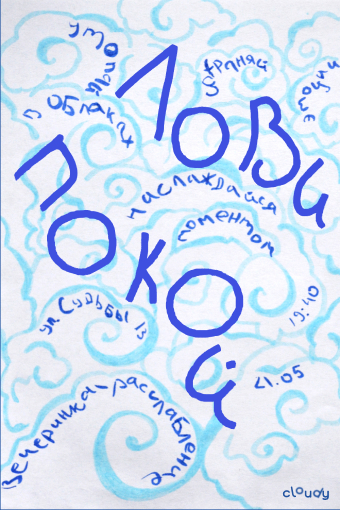 утопай
в облаках
ЛОВИ
ПОКОЙ
наслаждайся
моментом
ул. Судьбы 13
19:40
17.05
Вечеринка-расслабление
cloudy